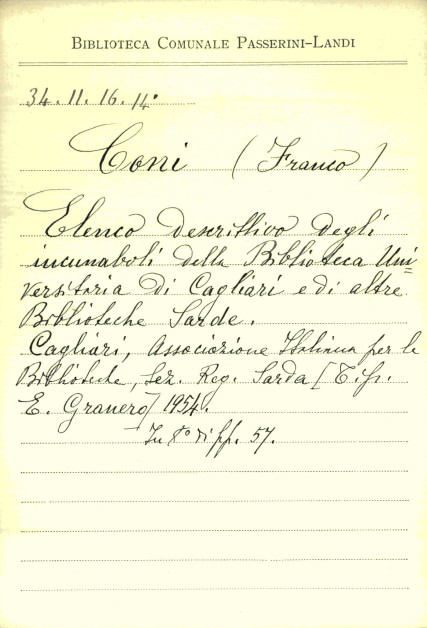 BIBLIOTECA COMUNALE PASSERINI-LANDI
34. 11. 16. 14°
Coni (Franco)
Elenco descrittivo degli
incunaboli della Biblioteca Uni=
versitaria di Cagliari e di altre
Biblioteche Sarde.
Cagliari, Associazione Italiana per le
Biblioteche, Sez. Reg. Sarda [Tip.
E. Granero] 1954.
In 8° di pp. 57.